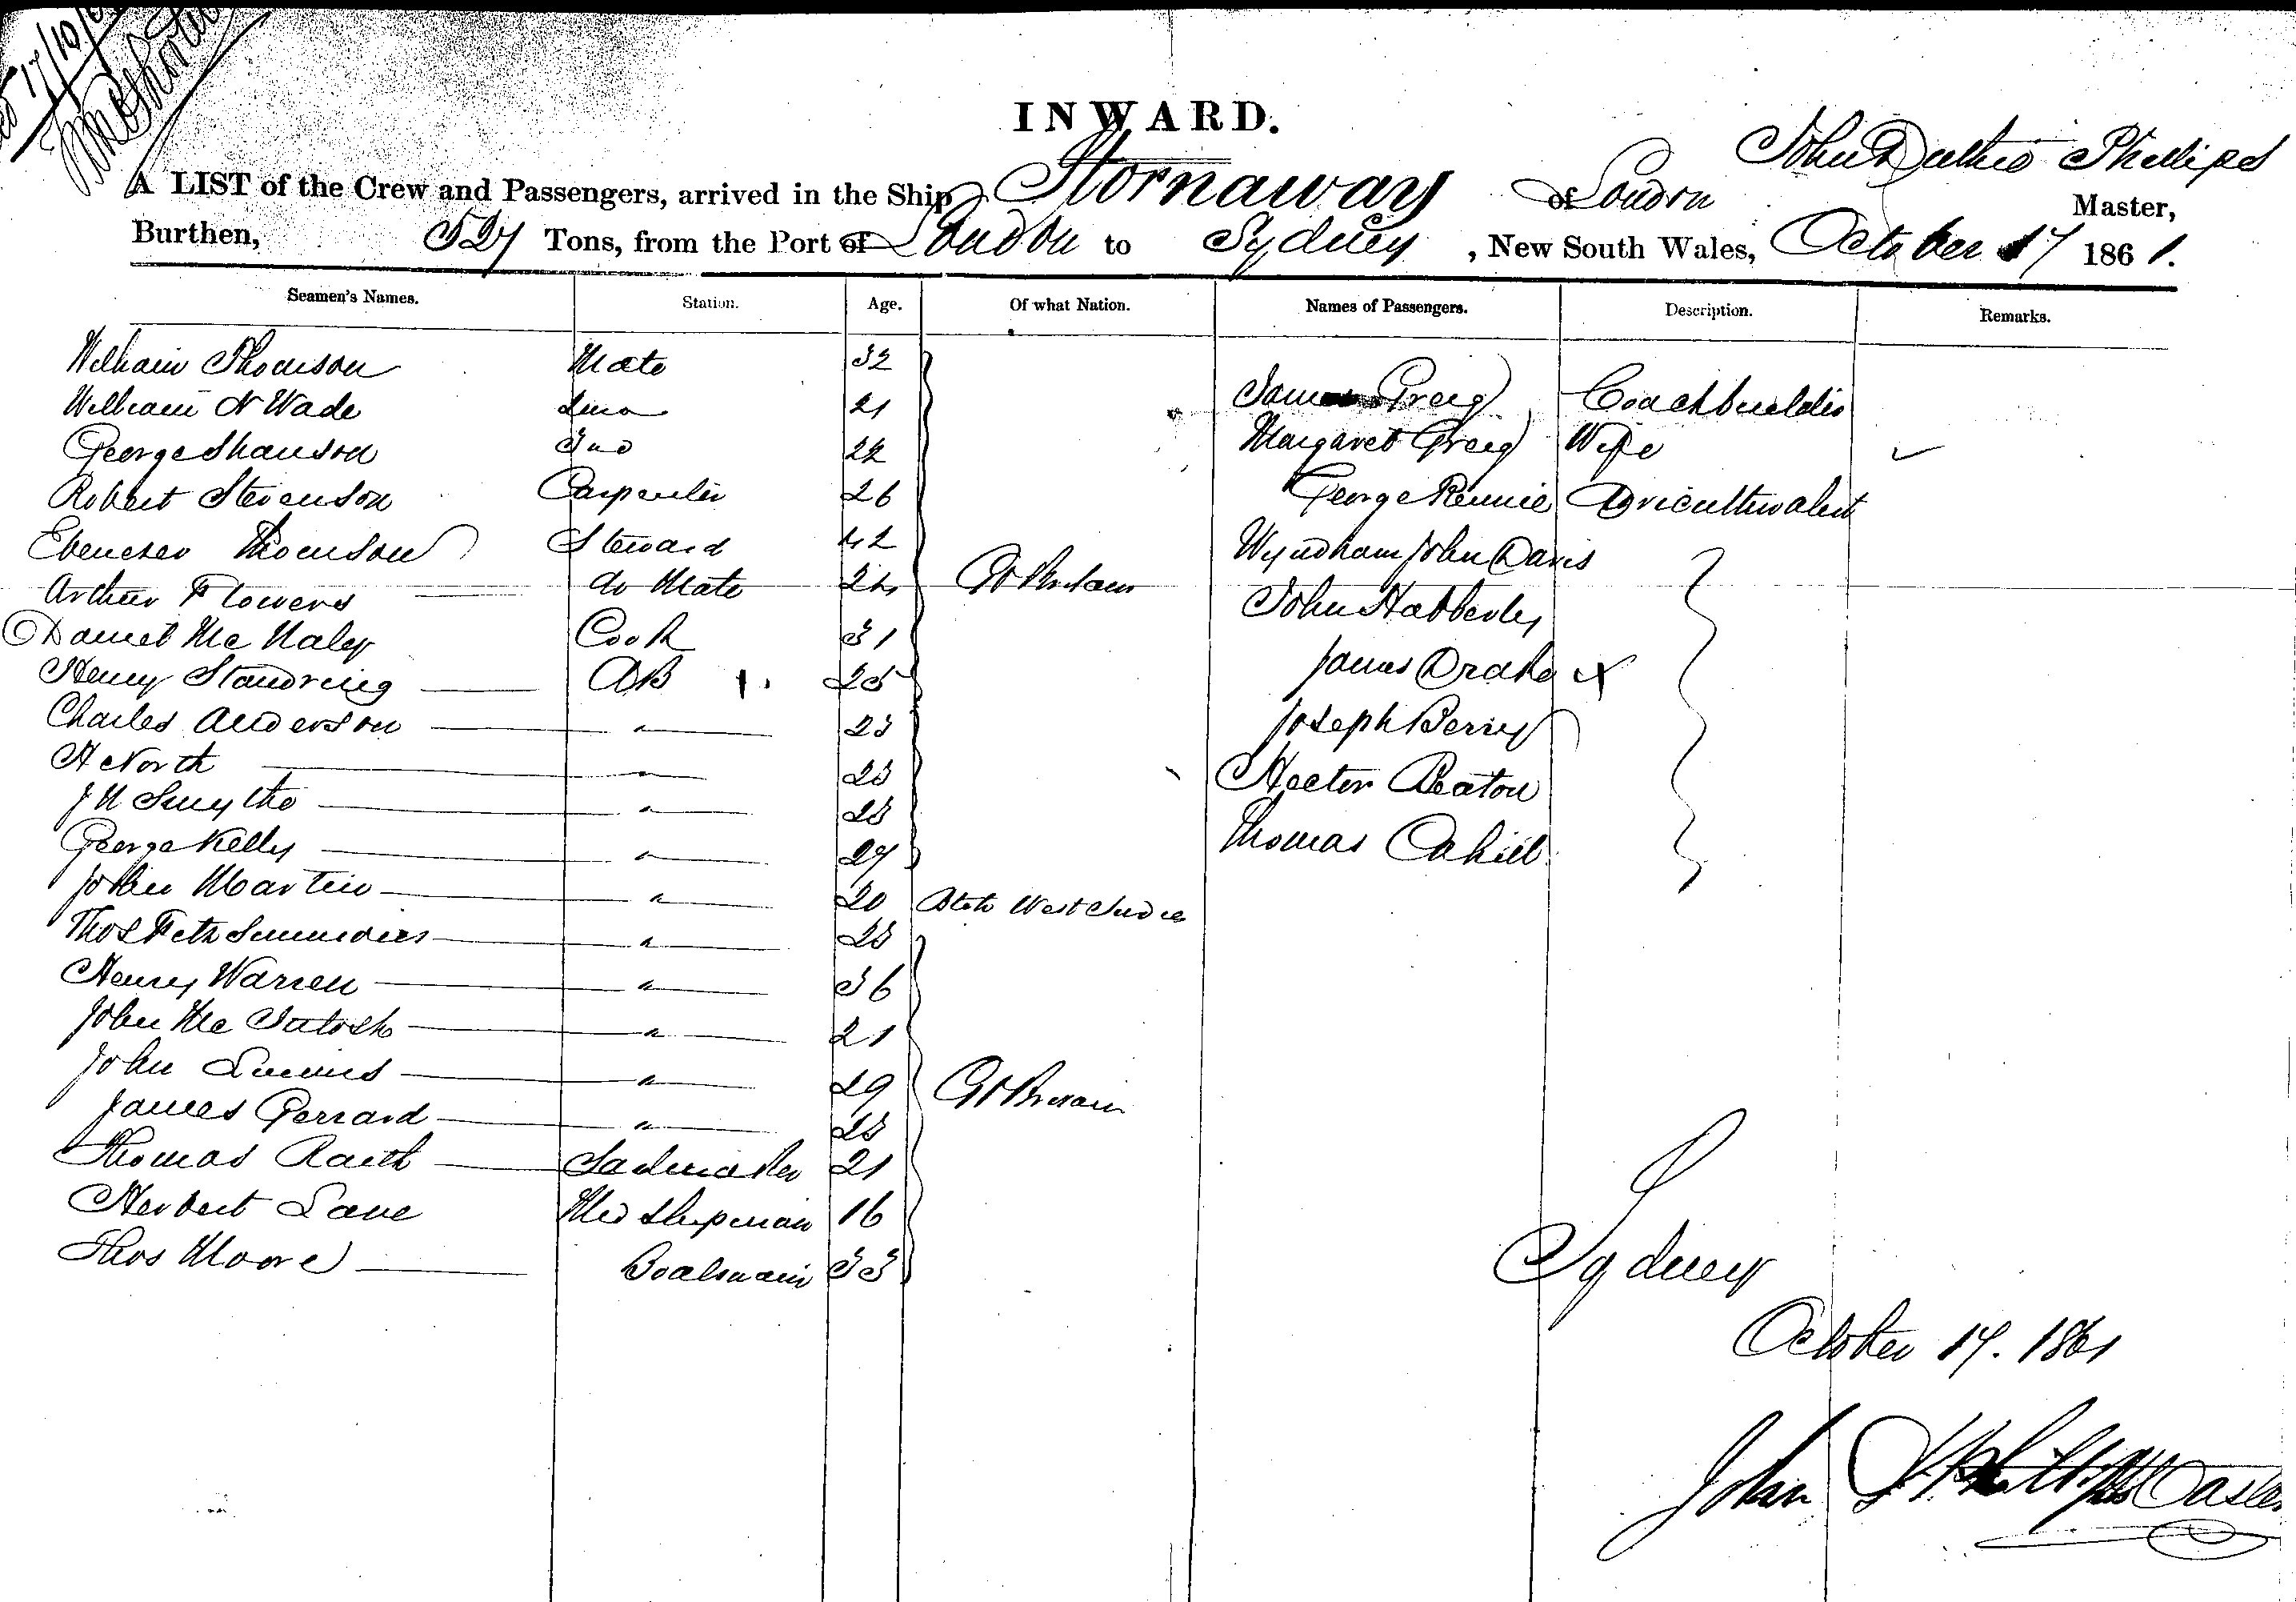 17/10/61
INWARD.
John Duthie Phillips
A LIST of the Crew and Passengers, arrived in the Ship Stornaway of London Master,
Burthen, 527 Tons, from the Port of London to Sydney, New South Wales, October 17 1861.
Seamen's Names. Station. Age. Of what Nation. Names of Passengers. Description. Remarks.
William Thomson Mate 32
James Greig Coachbuilder
William N Wade 21
Margaret Greig Wife
George Shanson 22
Robert Stevenson Carpenter 26
George Rennie Agriculturalist
Ebenezer Thomson Steward 42
Wyndham John Davis
Arthur Flowers do Mate 24 Gt Britain
John Habberley
Daniel McNaley Cook 31
James Drake x
Henry Standring AB 1. 25
Joseph Berry
Charles Anderson " 23
H North " 23
Hector Beaton
J H Smythe " 23
Thomas Cahill
George Kelly " 27
John Martin " 20 West Indies
Thos Fetz Simmons " 23
Henry Warren " 36
John McIntosh " 21
John " 29 Gt Britain
James Gerrard " 23
Thomas Raith Sailmaker 21
Herbert Lane Midshipman 16
Thos Moore Boatswain 33
Sydney
October 17. 1861
John D Phillips Master